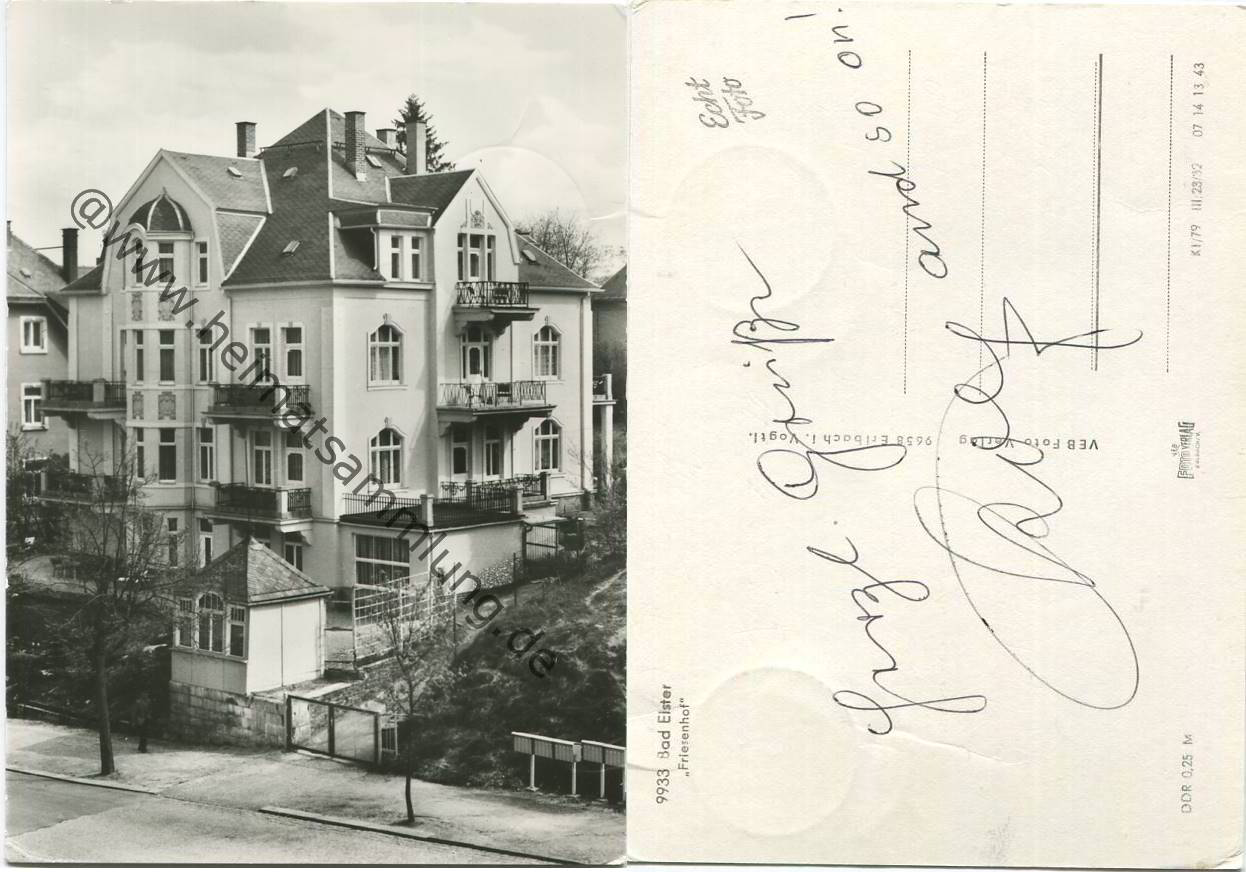 @www.heimatsammlung.de
9933 Bad Elster
„Friesenhof"
Echt
Foto
herzl. Grüße
and so on!
VEB Foto-Verlag 9658 Erlbach i. Vogtl.
VEB
FOTO VERLAG
ERLBACH/V.
DDR 0,25 M
K1/79 III 23/32 07 14 13 43